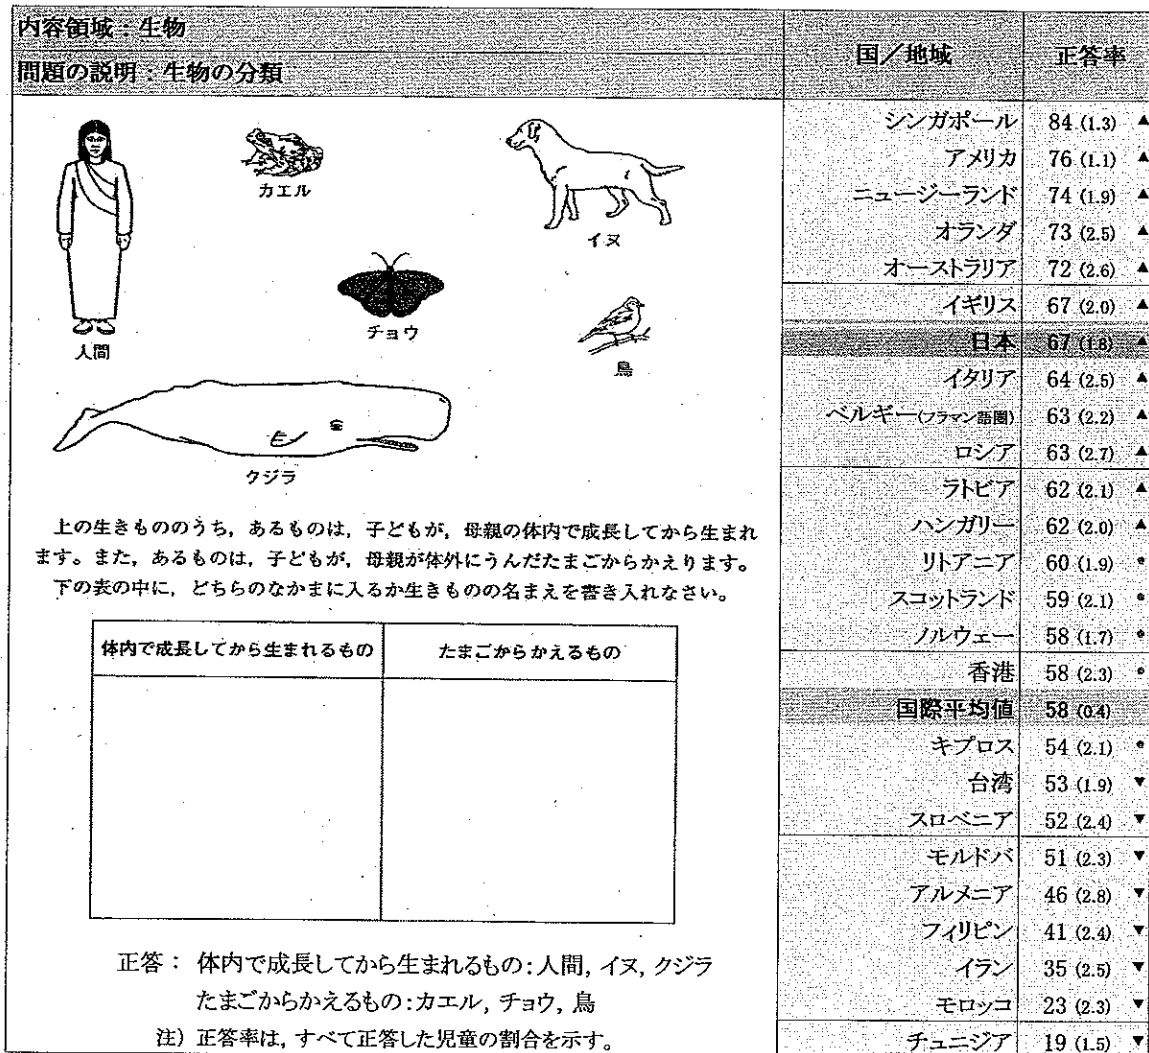 内容領域：生物
問題の説明：生物の分類
人間
カエル
イヌ
チョウ
鳥
クジラ
上の生きもののうち，あるものは，子どもが，母親の体内で成長してから生まれ
ます。また，あるものは，子どもが，母親が体外にうんだたまごからかえります。
下の表の中に，どちらのなかまに入るか生きものの名まえを書き入れなさい。
体内で成長してから生まれるもの たまごからかえるもの
正答： 体内で成長してから生まれるもの：人間，イヌ，クジラ
たまごからかえるもの：カエル，チョウ，鳥
注）正答率は，すべて正答した児童の割合を示す。
国／地域 正答率
シンガポール 84 (1.3) ▲
アメリカ 76 (1.1) ▲
ニュージーランド 74 (1.9) ▲
オランダ 73 (2.5) ▲
オーストラリア 72 (2.6) ▲
イギリス 67 (2.0) ▲
日本 67 (1.8) ▲
イタリア 64 (2.5) ▲
ベルギー(フラマン語圏) 63 (2.2) ▲
ロシア 63 (2.7) ▲
ラトビア 62 (2.1) ▲
ハンガリー 62 (2.0) ▲
リトアニア 60 (1.9) ●
スコットランド 59 (2.1) ●
ノルウェー 58 (1.7) ●
香港 58 (2.3) ●
国際平均値 58 (0.4)
キプロス 54 (2.1) ●
台湾 53 (1.9) ▼
スロベニア 52 (2.4) ▼
モルドバ 51 (2.3) ▼
アルメニア 46 (2.8) ▼
フィリピン 41 (2.4) ▼
イラン 35 (2.5) ▼
モロッコ 23 (2.3) ▼
チュニジア 19 (1.5) ▼